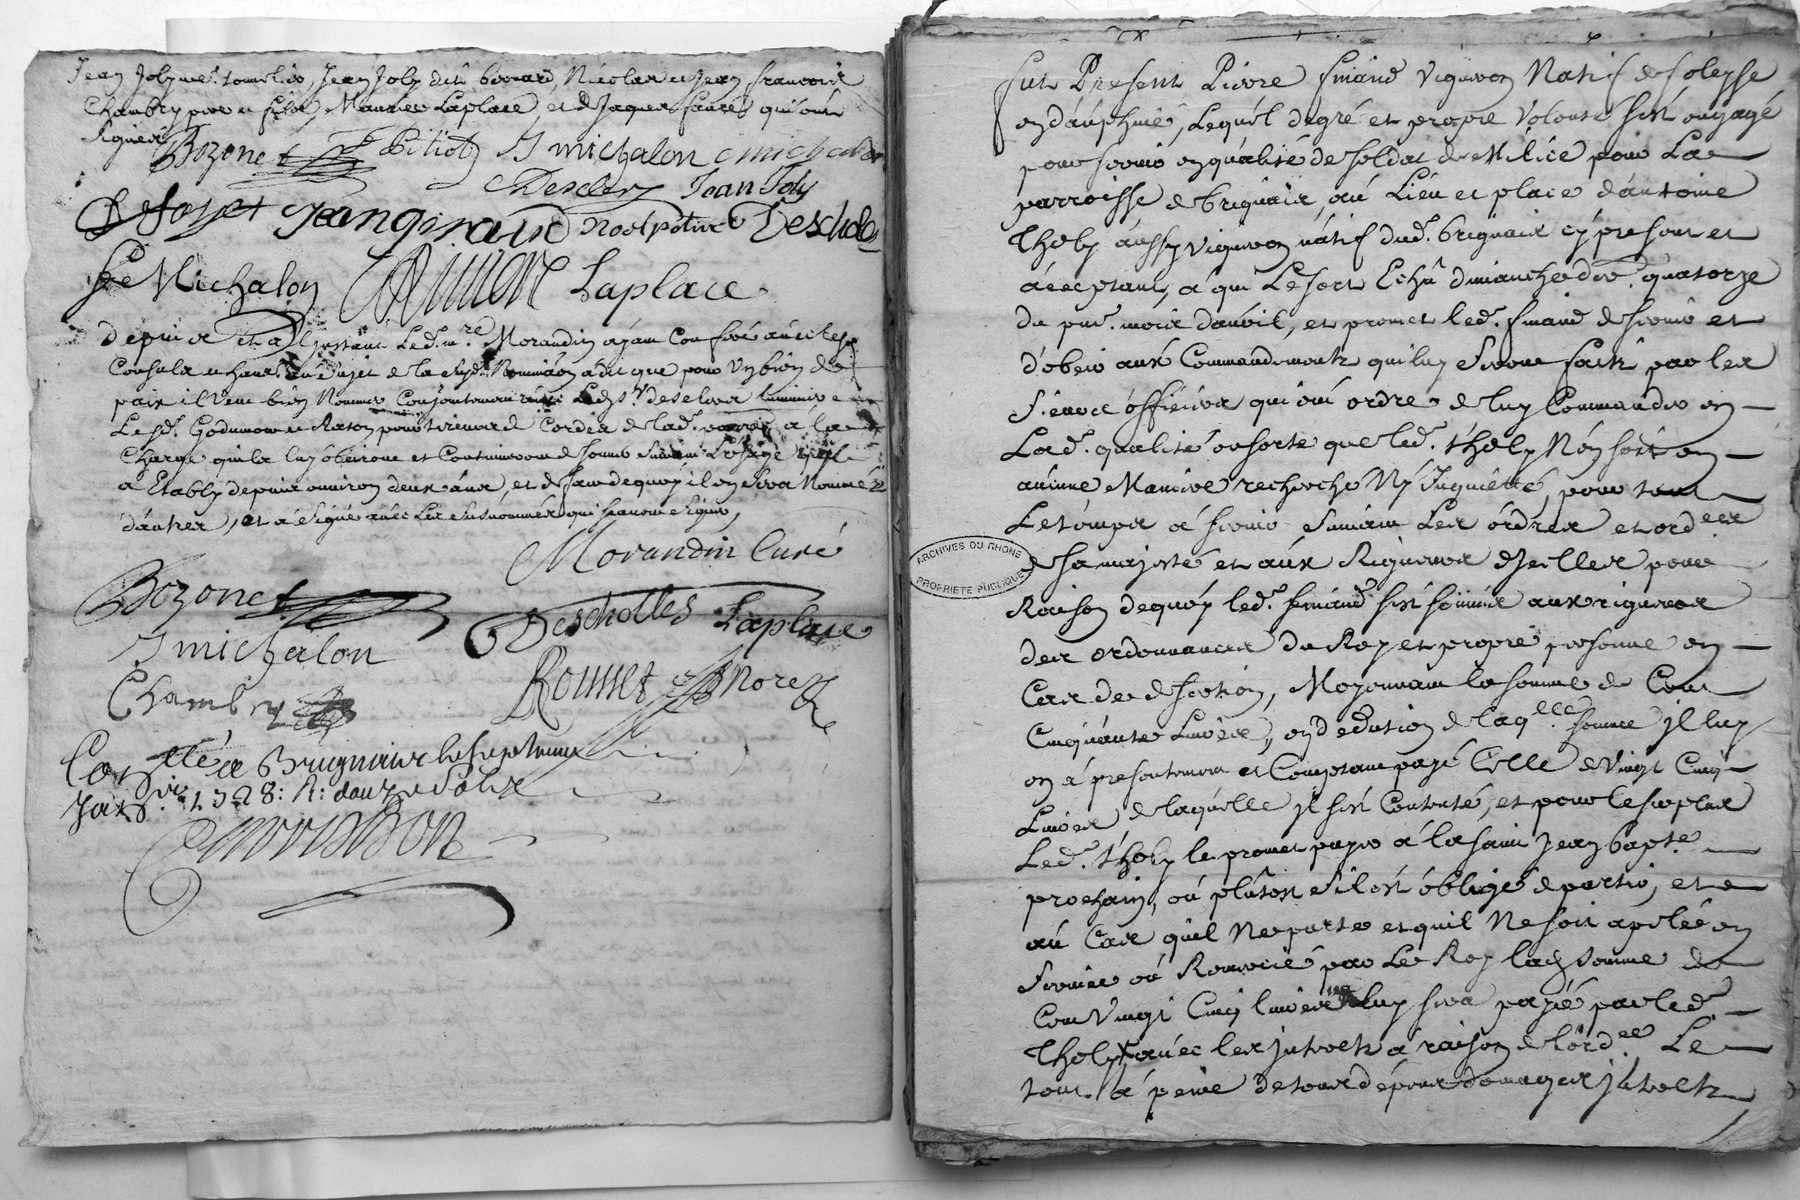 Jean Joly dit berard, Nicolas et Jean francois
Chambry pere et fils, Maurice Laplace, et de Jaques faures qui ont
signés
Bozonet Pitiot J michalon c michalon
Descler Jean Joly
Defarget Jean giraud noel pitiot Descholes
fr Michalon Laplace
depuis et a L'instant Led. mre. Morandin ayant Conferé avec les
Consuls et hans. au sujet de la susd. Nomination a dit que pour un bien de
paix il veut bien Nommer Conjointement avec
Le sd. Godumon et Raton pour tireurs de Cordes de lad. parroisse a la
charge quils luy obeiront et Continueront de sonner suivant L'usage quil
a Etably depuis environ deux ans, et de faute dequoy il en sera Nommé
d'autres, et a signé avec Les susnommes qui scavent signer,
Morandin Curé
Bozonet Descholles Laplace
J michalon
Rousset
Chambry
Conllé a Brignais le septieme
Janvier 1728: R: douze sols
fut Present Pierre finand Vigneron Natif de soleyse
en dauphiné, Lequel de gré et propre Volonté s'est engagé
pour servir en qualité de soldat de Milice pour La
parroisse de brignais, au Lieu et place d'antoine
Tholy aussy vigneron natif dud. brignais cy present et
acceptant, a qui Le sort Echû dimanche der. quatorze
du pnt. mois d'avril, et promet led. finand de servir et
d'obeir aux Commandements qui luy seront faits par les
sieurs officiers qui ont ordre de luy Commander en
Lad. qualité en sorte que led. tholy N'en soit en
aucune Maniere recherché Ny Inquiétté, pour tout
Le temps a servir suivant Les ordres et ordces
de sa majesté et aux Rigueurs d'icelles pour
Raison dequoy led. finand s'est soûmis aux rigueurs
des ordonnances du Roy et propre personne en
Cas de desertion, Moyennant la somme de Cent
Cinquante Livres, en deduction de laqlle somme il luy
en a presentement et Comptant payé Celle de Vingt Cinq
Livres de laquelle il s'est Contenté, et pour le surplus
Led. tholy le promet payer a la saint Jean bapte.
prochain, ou plûtost s'il est obligé de partir, et
au Cas quil Ne parte et quil Ne soit apellé en
service ou Renvoié par Le Roy lad. somme de
Cent Vingt Cinq livres luy sera payée par led.
Tholy avec les jnterets a raison de l'ordce Le
tout a peine de tous dépens domages jnterets
ARCHIVES DU RHONE
PROPRIETE PUBLIQUE